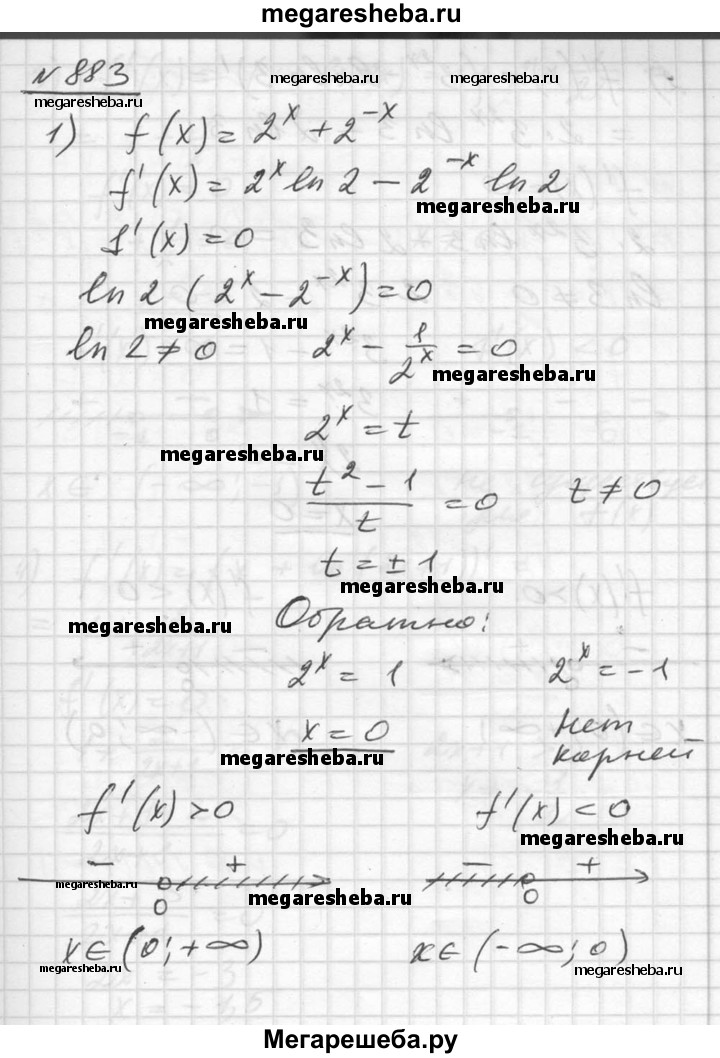 megaresheba.ru
№ 883
megaresheba.ru megaresheba.ru
megaresheba.ru
1) f(x) = 2^x + 2^{-x}
f'(x) = 2^x ln 2 - 2^{-x} ln 2
megaresheba.ru
f'(x) = 0
ln 2 (2^x - 2^{-x}) = 0
megaresheba.ru
ln 2 ≠ 0 2^x - 1/2^x = 0
megaresheba.ru
2^x = t
megaresheba.ru
(t^2 - 1)/t = 0 t ≠ 0
t = ± 1
megaresheba.ru
Обратно:
megaresheba.ru
2^x = 1 2^x = -1
x = 0 нет
корней
megaresheba.ru
f'(x) > 0 f'(x) < 0
megaresheba.ru
- + - +
megaresheba.ru
megaresheba.ru
0 0
x ∈ (0; +∞) x ∈ (-∞; 0)
megaresheba.ru megaresheba.ru
Мегарешеба.ру